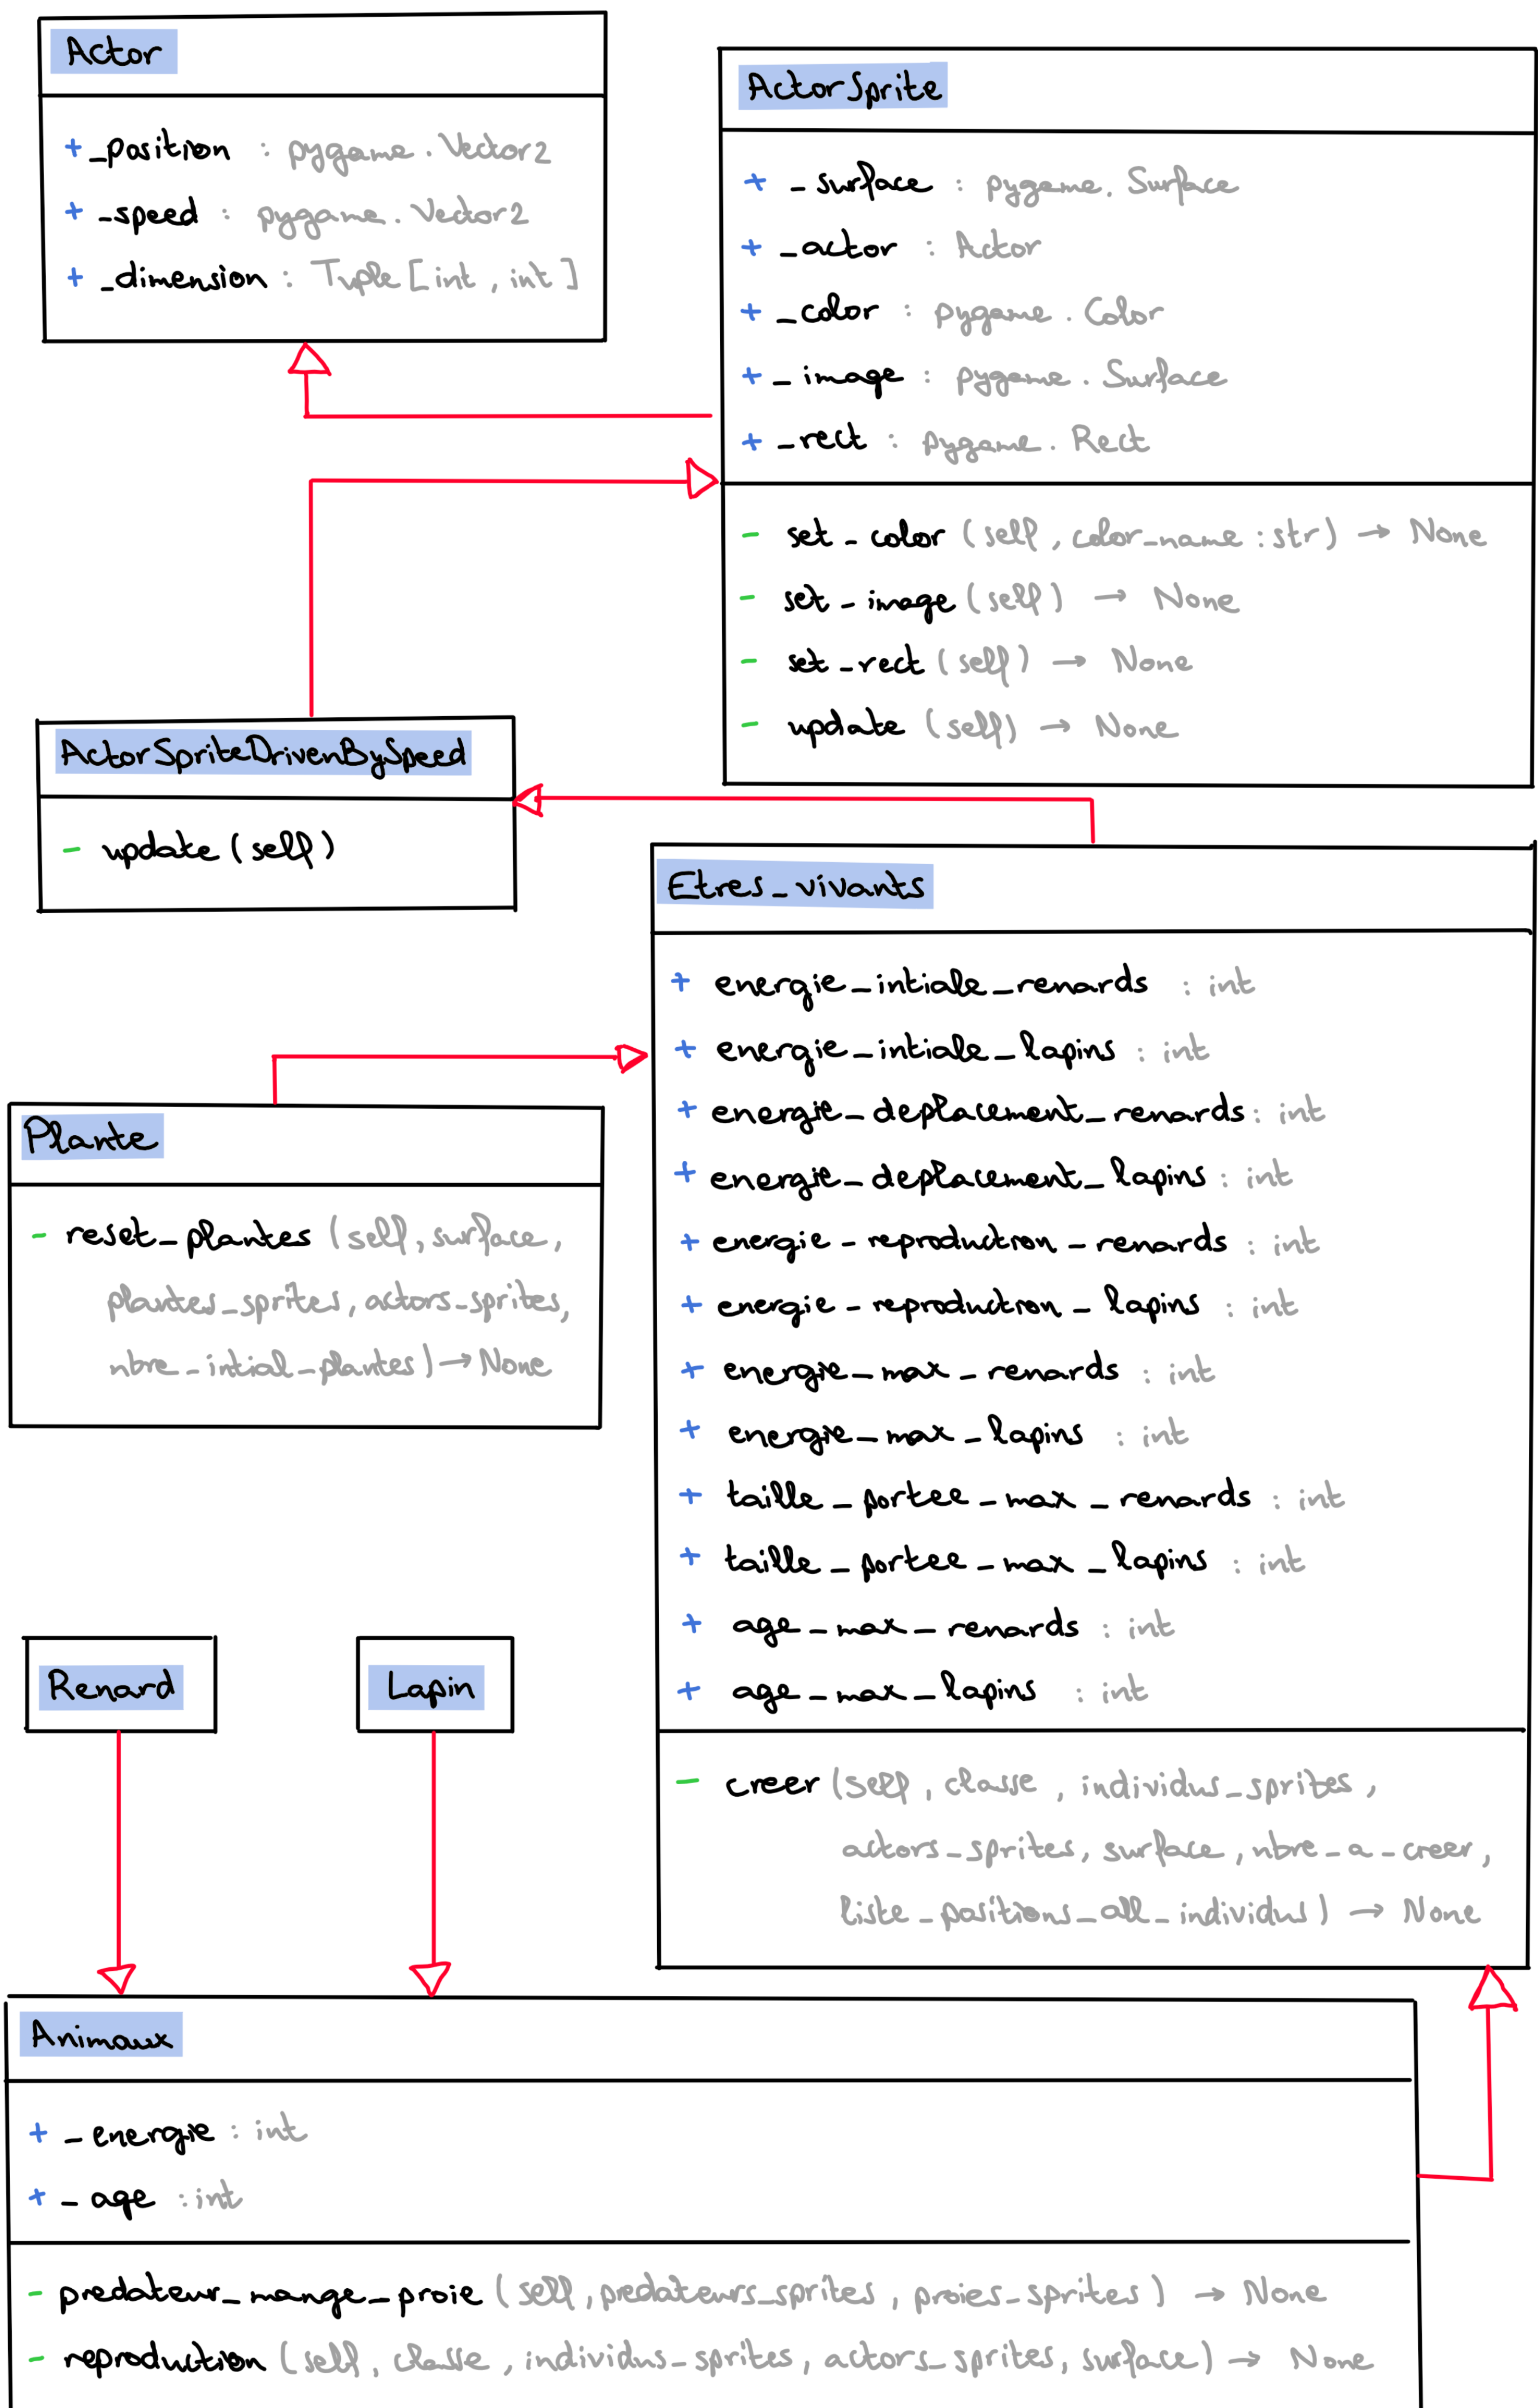 Actor
+ _position : pygame.Vector2
+ _speed : pygame.Vector2
+ _dimension : Tuple[int, int]
ActorSprite
+ _surface : pygame.Surface
+ _actor : Actor
+ _color : pygame.Color
+ _image : pygame.Surface
+ _rect : pygame.Rect
- set_color (self, color_name : str) → None
- set_image (self) → None
- set_rect (self) → None
- update (self) → None
ActorSpriteDrivenBySpeed
- update (self)
Etres_vivants
+ energie_intiale_renards : int
+ energie_intiale_lapins : int
+ energie_deplacement_renards : int
+ energie_deplacement_lapins : int
+ energie_reproduction_renards : int
+ energie_reproduction_lapins : int
+ energie_max_renards : int
+ energie_max_lapins : int
+ taille_portee_max_renards : int
+ taille_portee_max_lapins : int
+ age_max_renards : int
+ age_max_lapins : int
- creer (self, classe, individus_sprites,
actors_sprites, surface, nbre_a_creer,
liste_positions_all_individus) → None
Plante
- reset_plantes (self, surface,
plantes_sprites, actors_sprites,
nbre_intial_plantes) → None
Renard
Lapin
Animaux
+ _energie : int
+ _age : int
- predateur_mange_proie (self, predateurs_sprites, proies_sprites) → None
- reproduction (self, classe, individus_sprites, actors_sprites, surface) → None